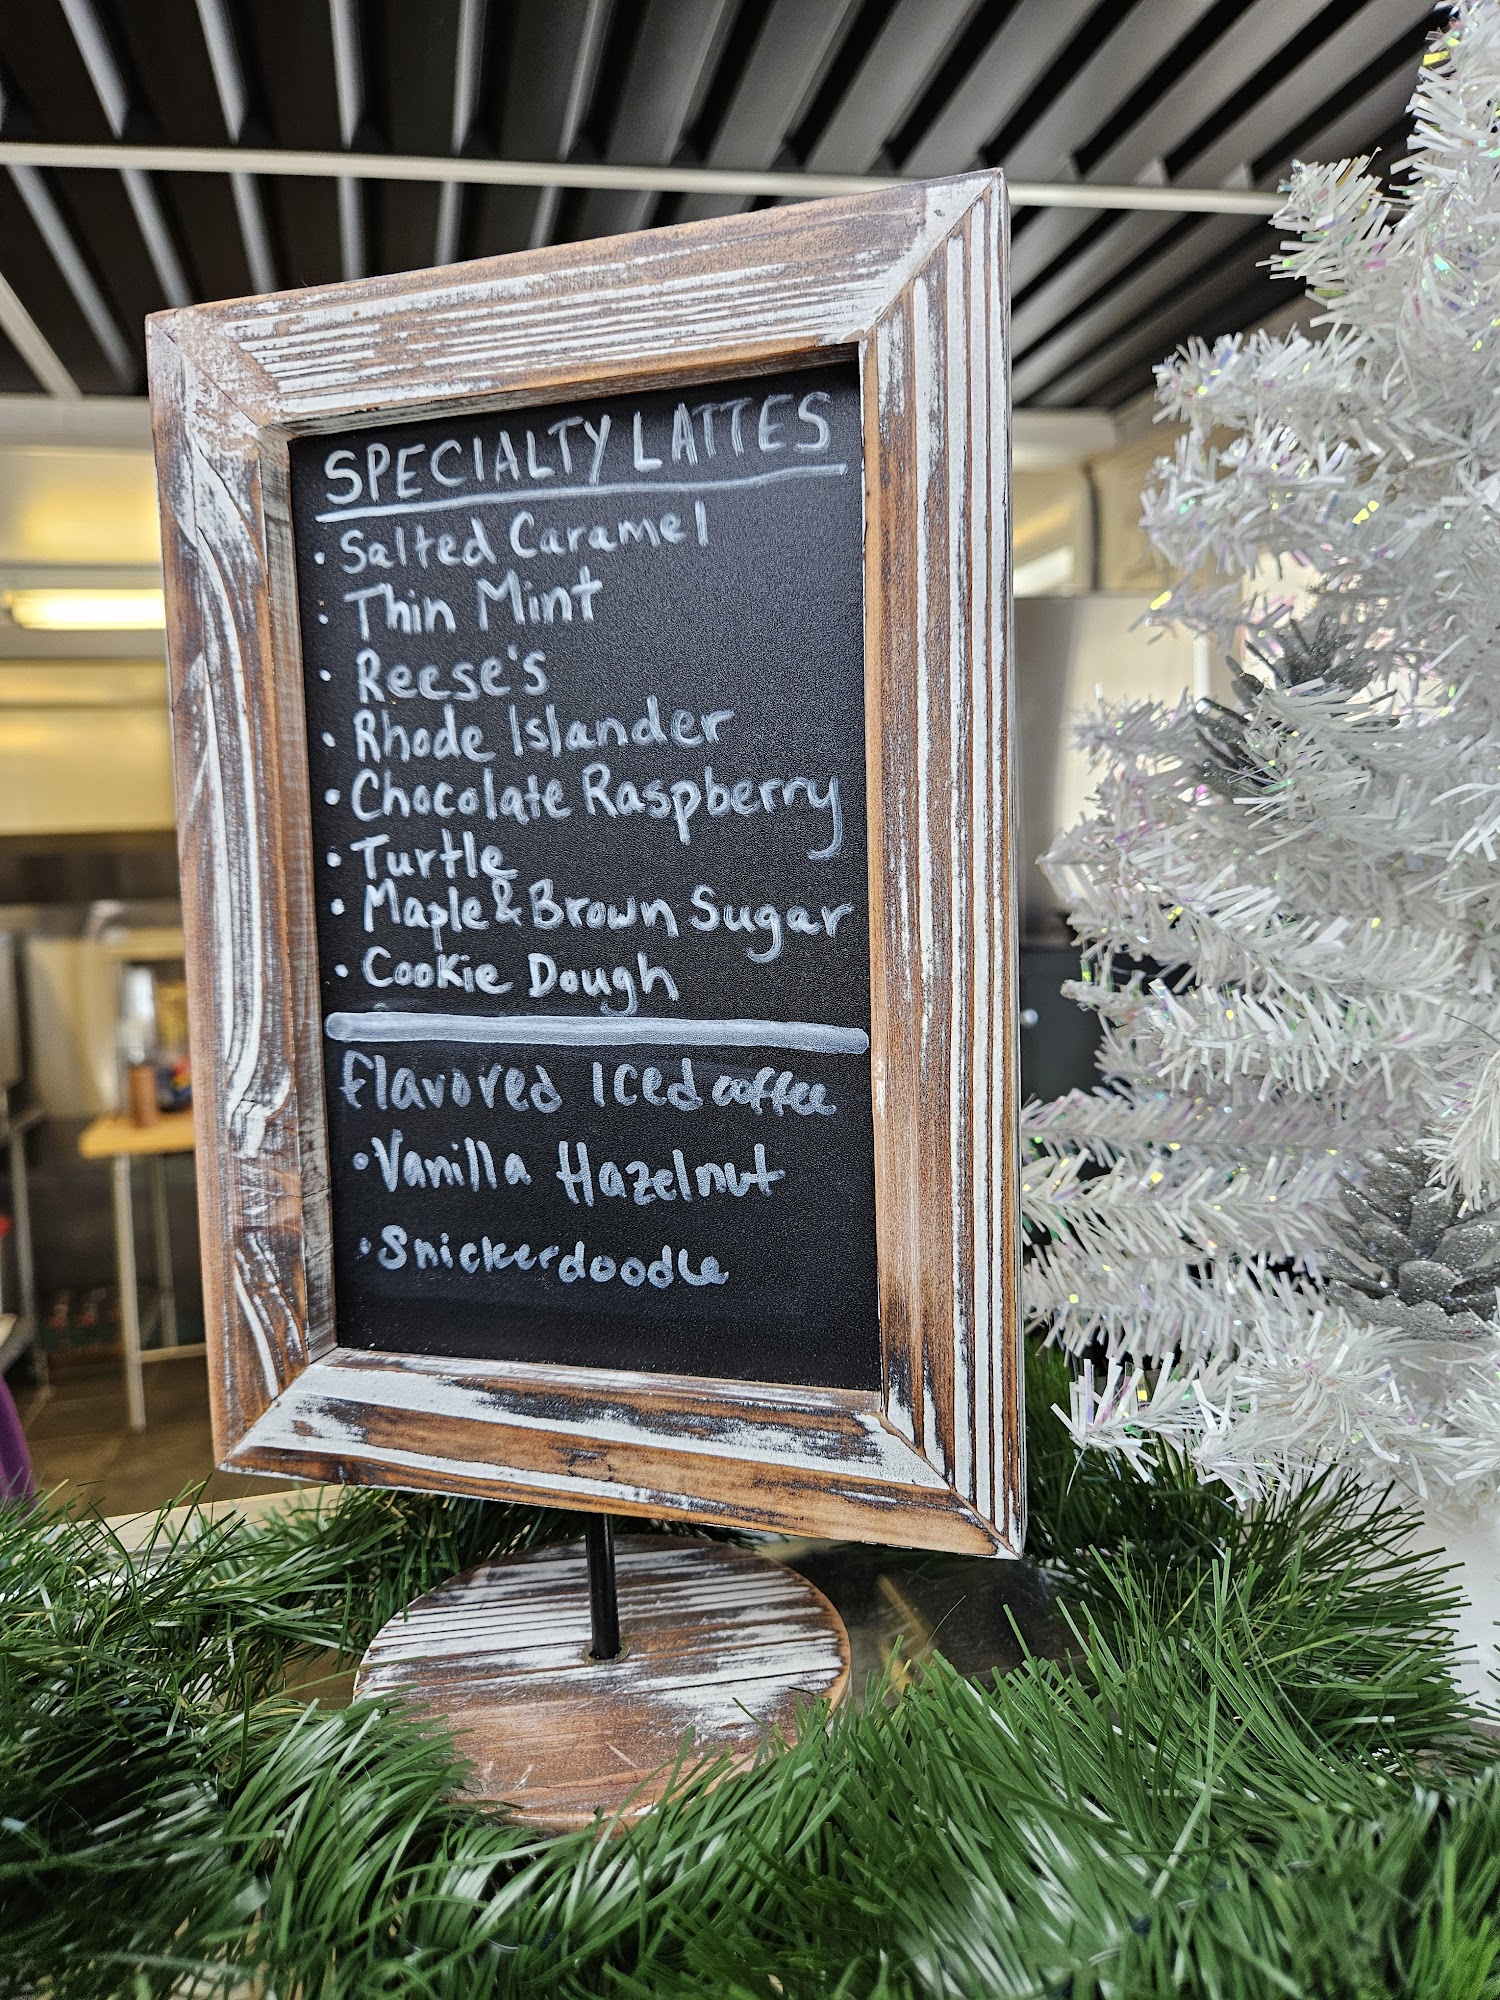 SPECIALTY LATTES
• Salted Caramel
• Thin Mint
• Reese's
• Rhode Islander
• Chocolate Raspberry
• Turtle
• Maple & Brown Sugar
• Cookie Dough
Flavored Iced coffee
• Vanilla Hazelnut
• Snickerdoodle